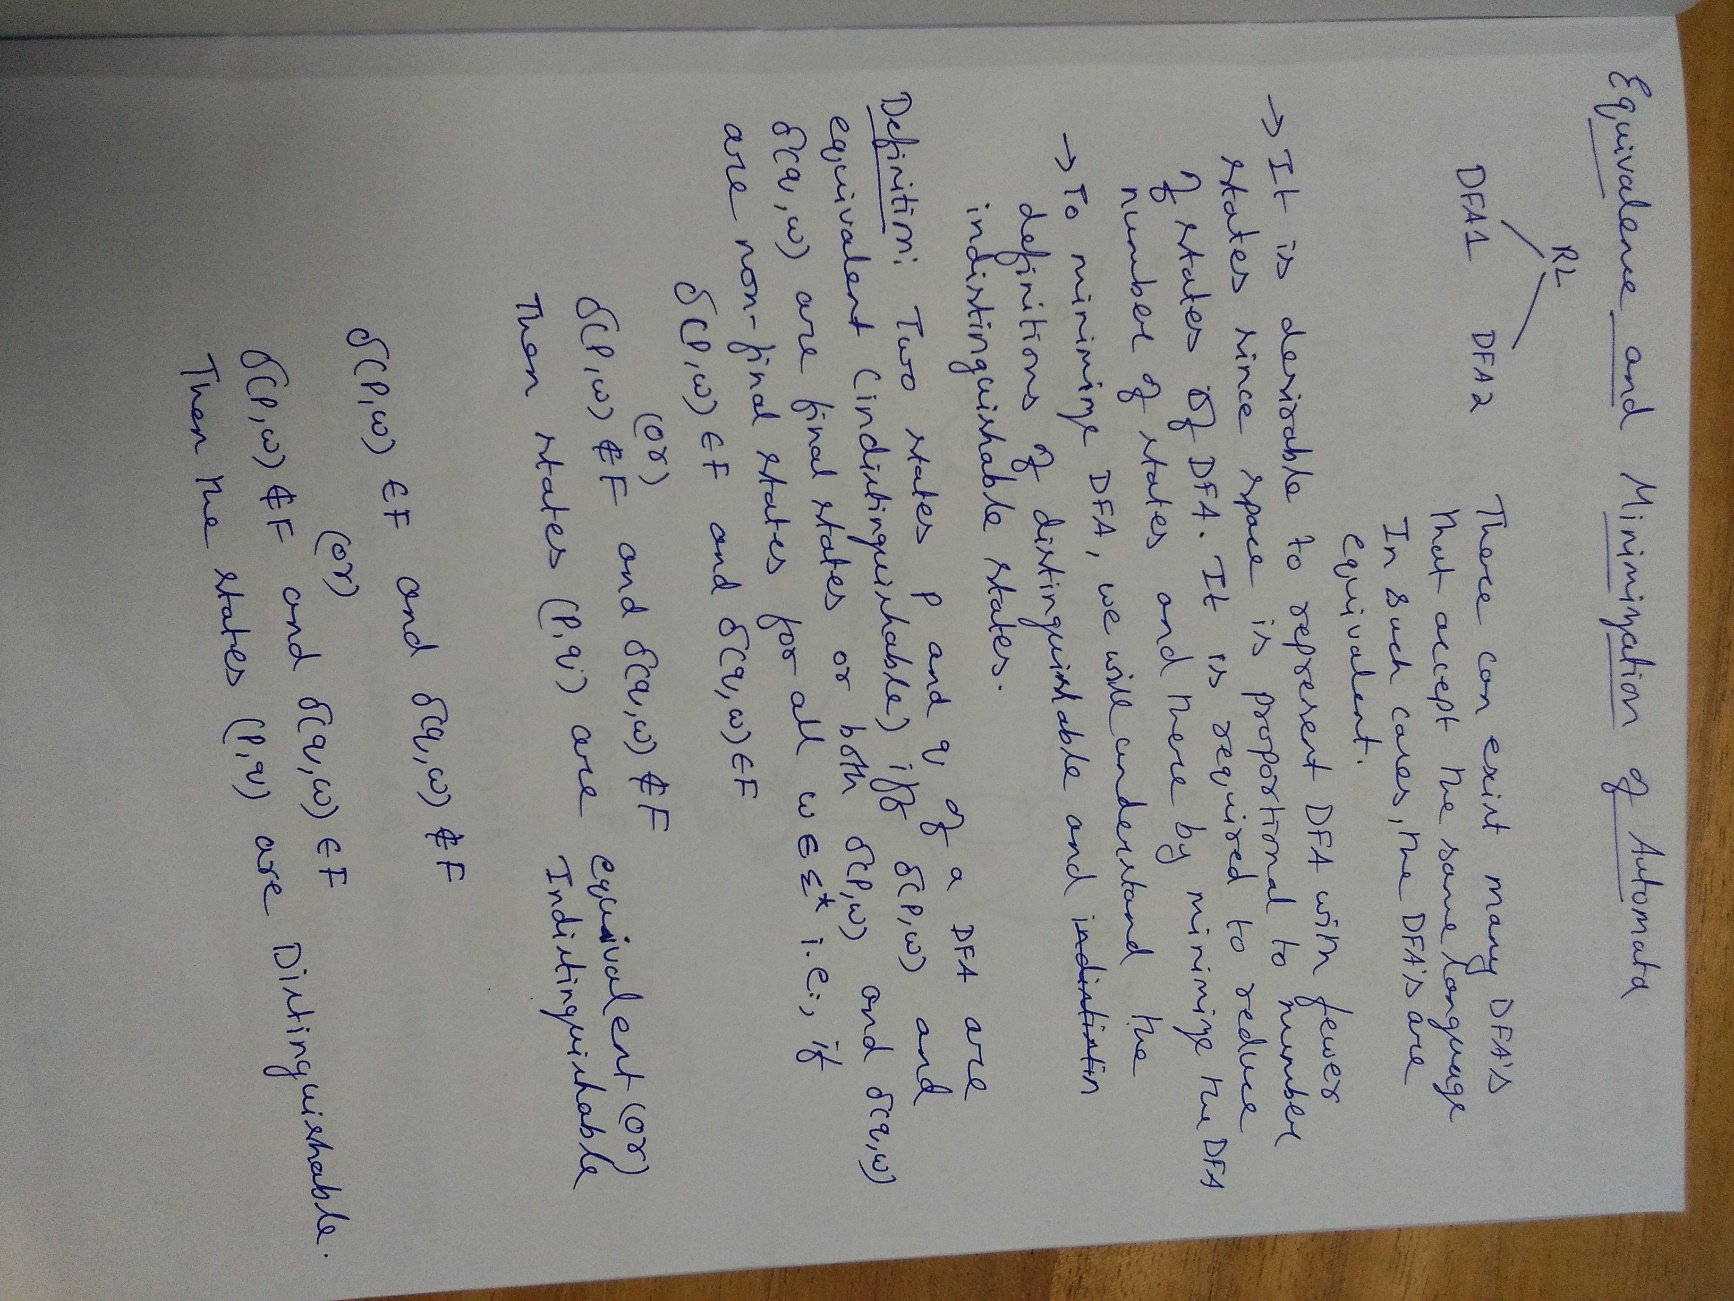 Equivalence and Minimization of Automata
RL
DFA1 DFA2
There can exist many DFA's
that accept the same language
In such cases, the DFA's are
equivalent.
→ It is desirable to represent DFA with fewer
states since space is proportional to number
of states of DFA. It is required to reduce
number of states and there by minimize the DFA
→ To minimize DFA, we will understand the
definitions of distinguishable and indistin
indistinguishable states.
Definition: Two states p and q of a DFA are
equivalent (indistinguishable) iff δ(p,w) and
δ(q,w) are final states or both δ(p,w) and δ(q,w)
are non-final states for all w ∈ Σ* i.e., if
δ(p,w) ∈ F and δ(q,w) ∈ F
(or)
δ(p,w) ∉ F and δ(q,w) ∉ F
Then states (p,q) are equivalent (or)
Indistinguishable
δ(p,w) ∈ F and δ(q,w) ∉ F
(or)
δ(p,w) ∉ F and δ(q,w) ∈ F
Then the states (p,q) are Distinguishable.